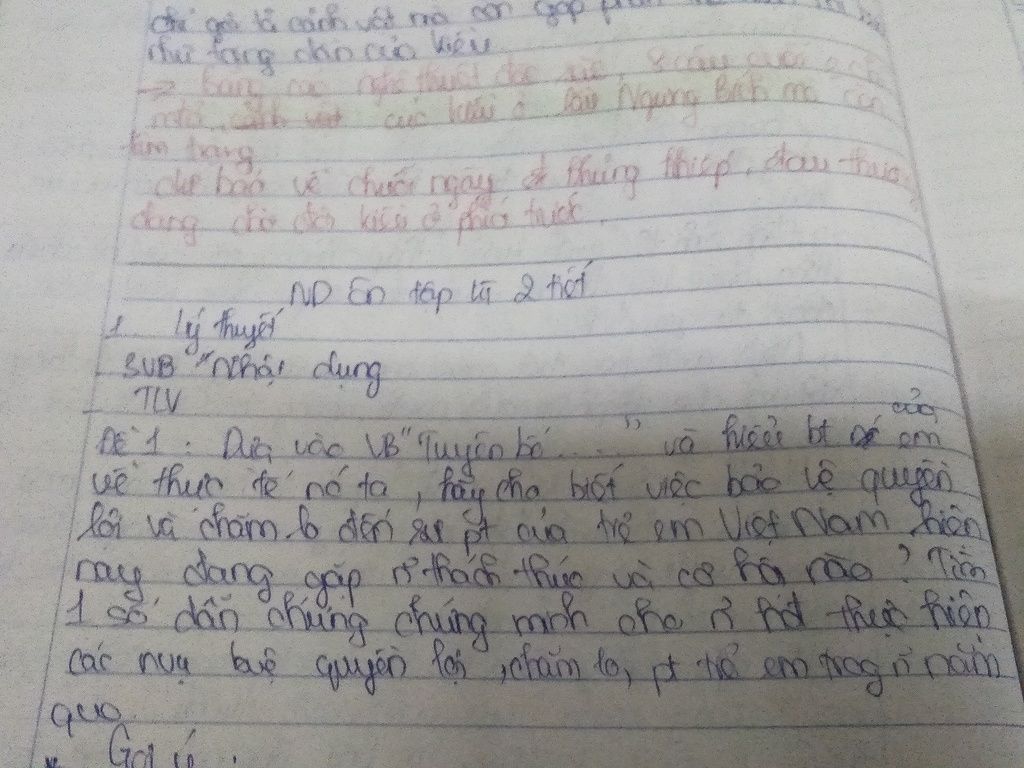 chỉ gợi tả cảnh vật mà còn góp phần
như trạng của Kiều
→ Bằng nghệ thuật đặc sắc, 8 câu cuối
của Kiều ở lầu Ngưng Bích mà còn
tâm trạng
dự báo về chuỗi ngày thưng thiếp, đau thương
đang chờ đón Kiều ở phía trước.
ND ôn tập là 2 tiết
1. Lý thuyết
3VB "Nhật dụng
TLV
Đề 1: Dựa vào VB "Tuyên bố....." và hiểu bt của em
về thực tế nc ta, hãy cho biết việc bảo vệ quyền
lợi và chăm lo đến sự pt của trẻ em Việt Nam hiện
nay đang gặp n~ thách thức và cơ hội nào? Tìm
1 số dẫn chứng chứng minh cho n~ thực hiện
các quyền lợi, chăm lo, pt trẻ em trog n~ năm
qua
* Gợi ý: